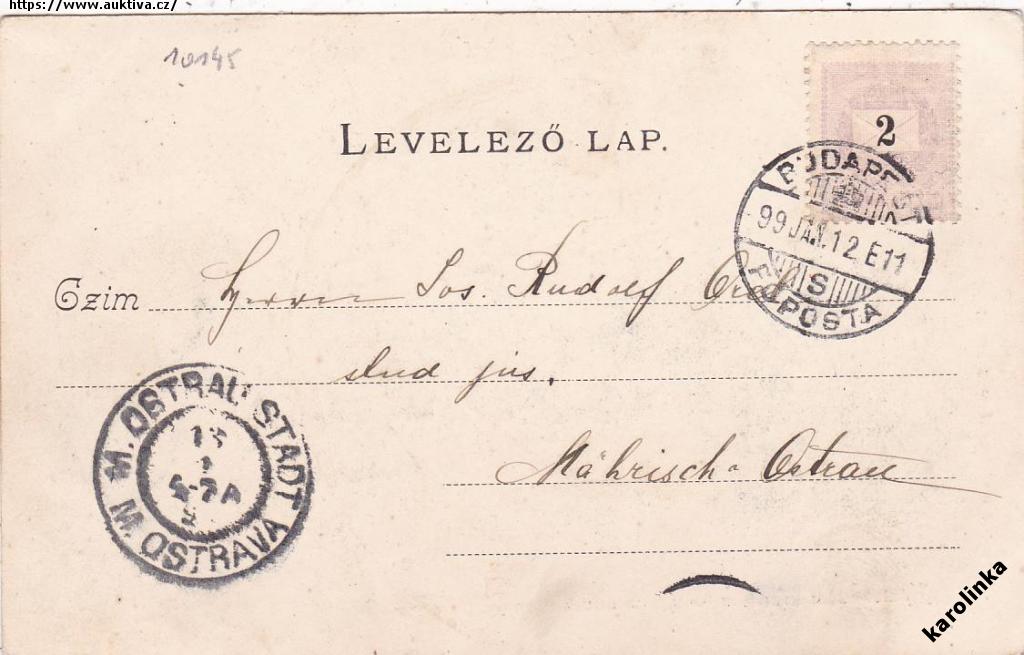 https://www.auktiva.cz/
10145
LEVELEZŐ LAP.
2
BUDAPEST
99 JAN. 12 E11
S
FŐPOSTA
Czim Herrn Jos. Rudolf
stud jur.
Mährisch Ostrau
M. OSTRAU STADT
13
1
5-7A
M. OSTRAVA
karolinka